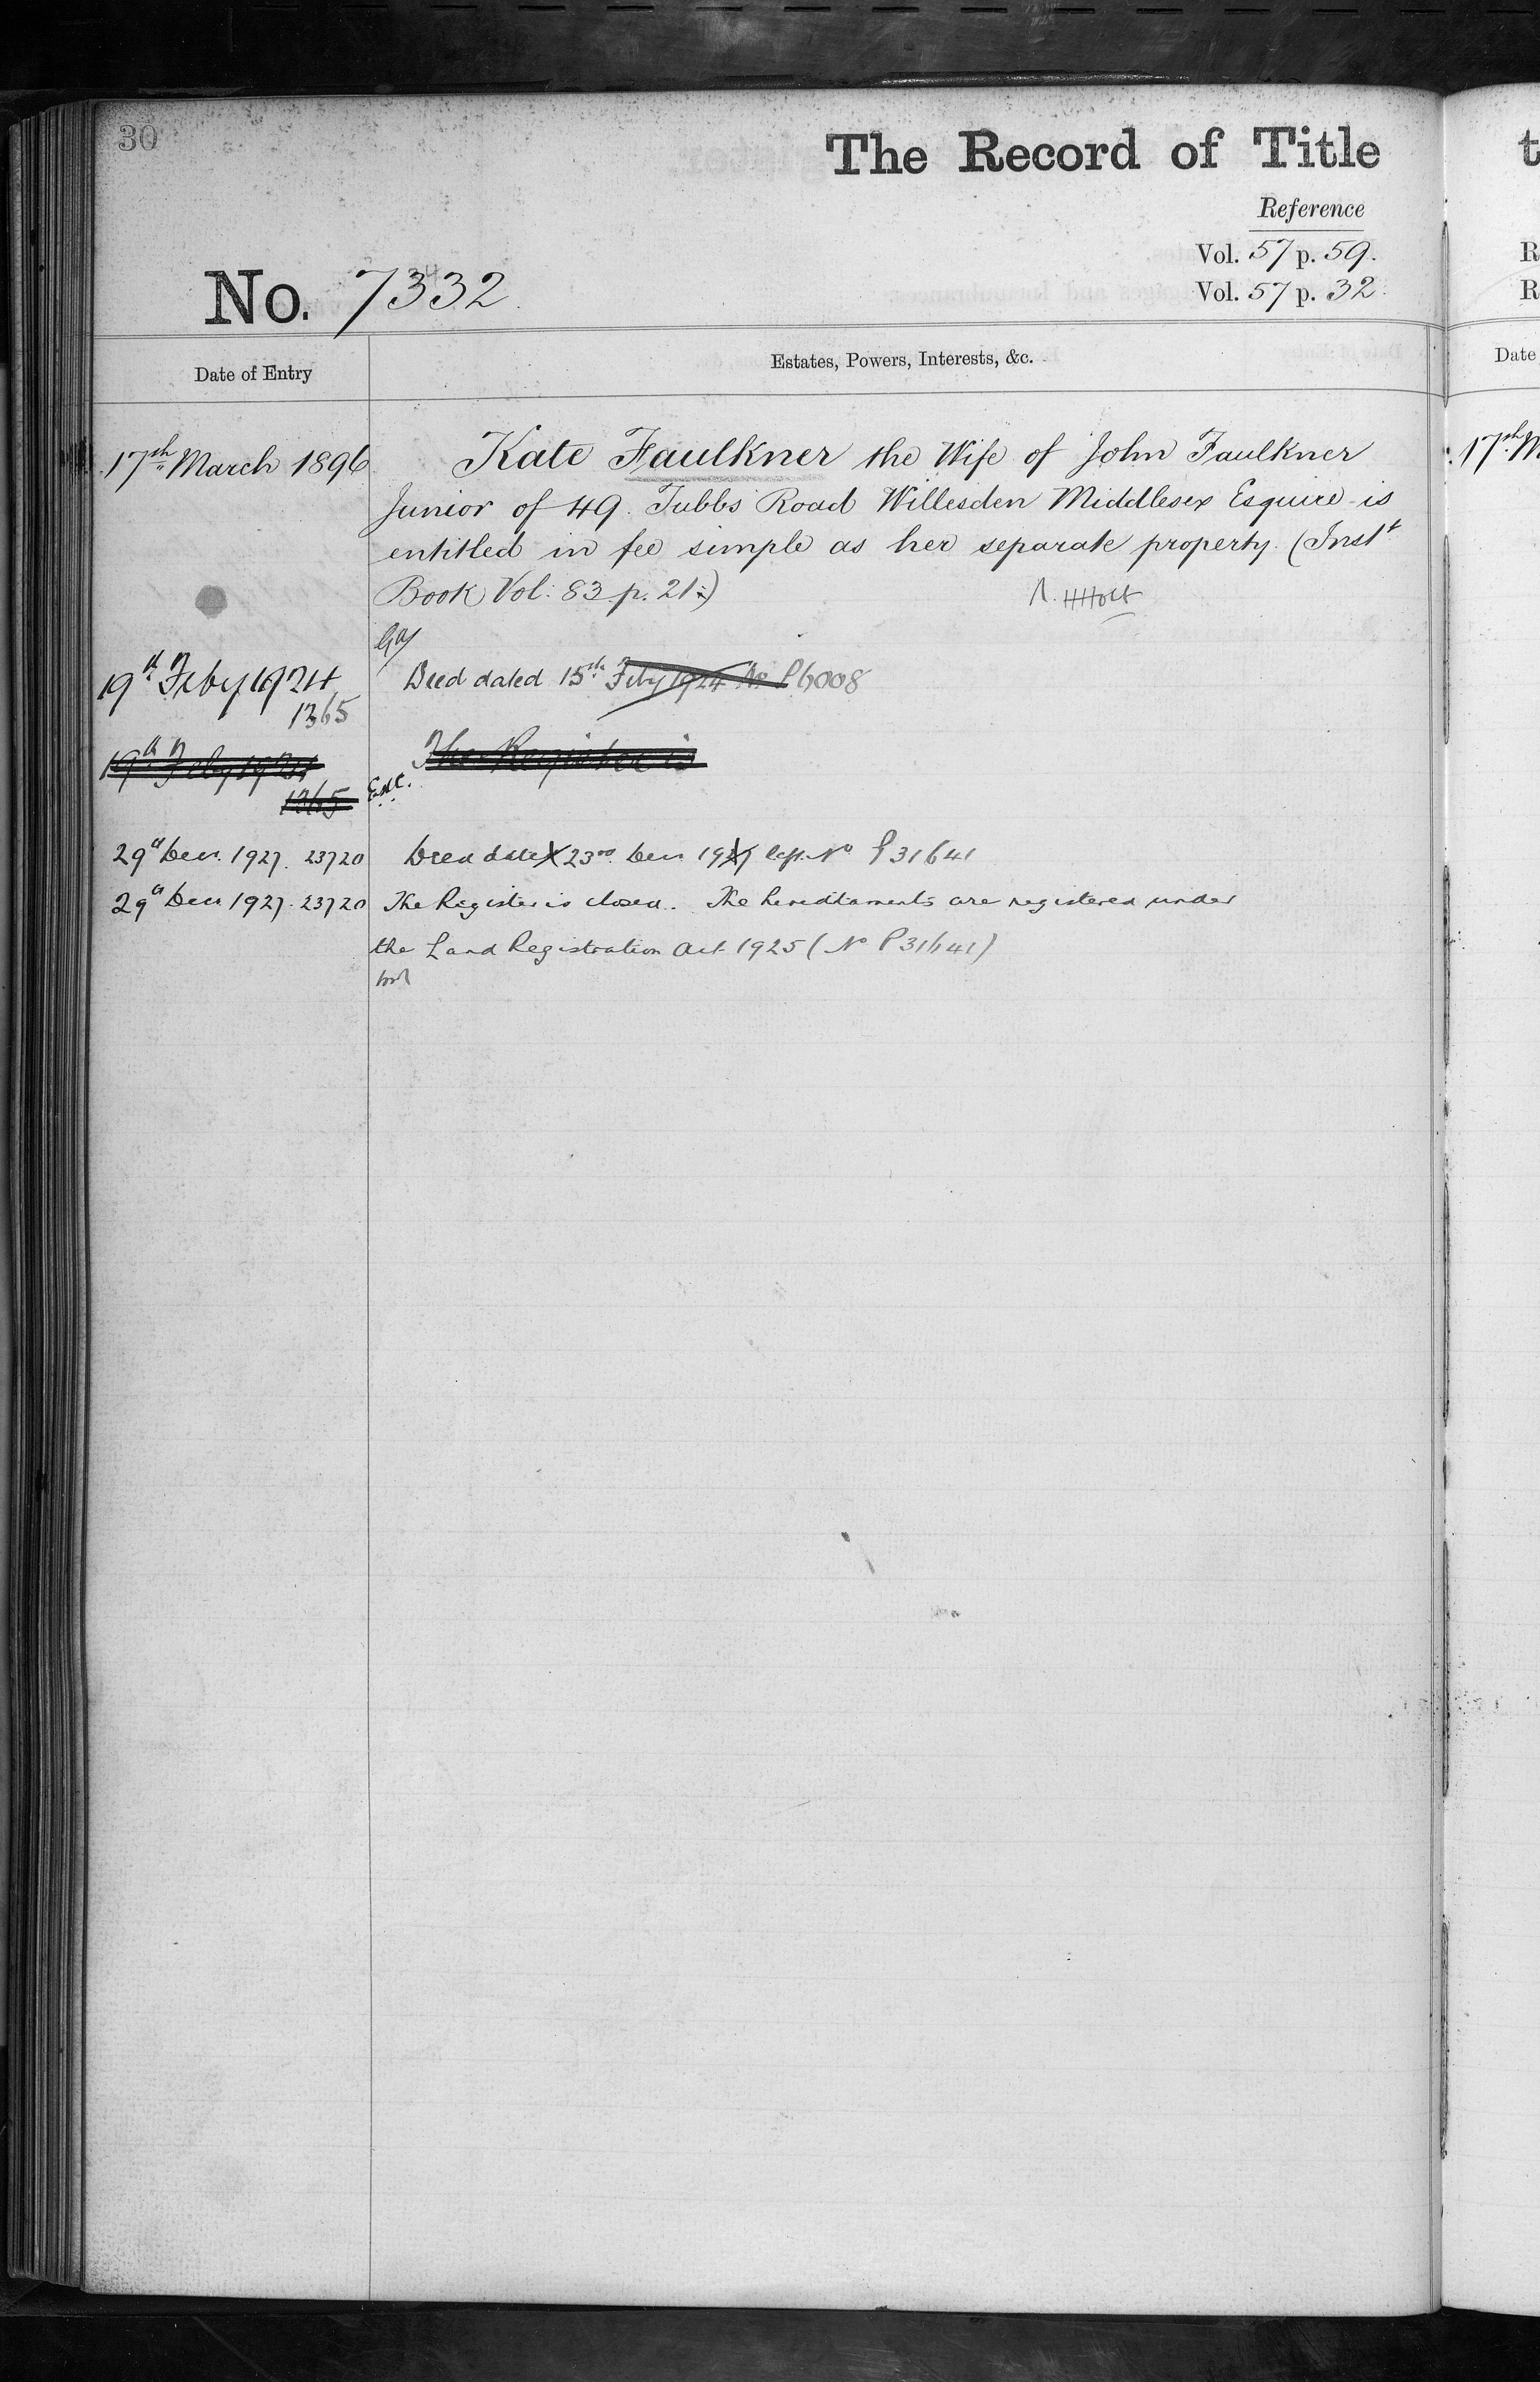 30
The Record of Title
Reference
Vol. 57 p. 59.
No. 7332
Vol. 57 p. 32
Date of Entry
Estates, Powers, Interests, &c.
17th March 1896
Kate Faulkner the Wife of John Faulkner
Junior of 49 Tubbs Road Willesden Middlesex Esquire is
entitled in fee simple as her separate property. (Inst
Book Vol: 83 p. 21:)
19th Feby 1924
1365
Deed dated 15th Feby 1924 No P6008
19th Feby 1924
1365
The Register is
29th Decr. 1927. 23720
Deed dated 23rd Decr 1927 No P31641
29th Decr 1927. 23720
The Register is closed. The hereditaments are registered under
the Land Registration Act 1925 (No P31641)
t
R
R
Date
17th M